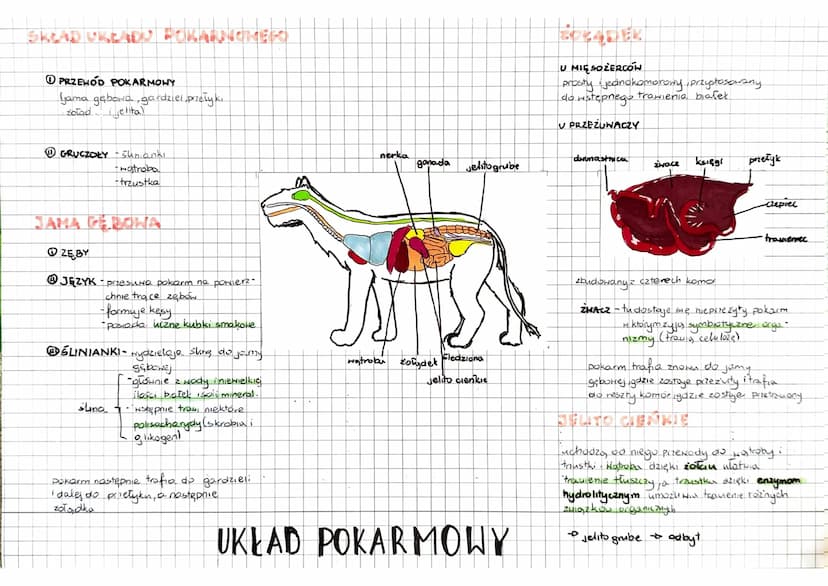 SKŁAD UKŁADU POKARMOWEGO
I PRZEWÓD POKARMOWY
(jama gębowa, gardziel, przełyk,
żołąd i jelita)
II GRUCZOŁY - ślinianki
- wątroba
- trzustka
JAMA GĘBOWA
I ZĘBY
II JĘZYK - przesuwa pokarm na powierz-
chnie trące zębów
- formuje kęsy
- posiada liczne kubki smakowe
III ŚLINIANKI - wydzielają ślinę do jamy
gębowej
ślina
- głównie z wody i niewielkiej
ilości białek i soli mineral.
- wstępnie trawi niektóre
polisacharydy (skrobia i
glikogen)
pokarm następnie trafia do gardzieli
i dalej do przełyku, a następnie
żołądka
nerka
gonada
jelito grube
wątroba
żołądek
śledziona
jelito cienkie
UKŁAD POKARMOWY
ŻOŁĄDEK
U MIĘSOŻERCÓW
prosty i jednokomorowy, przystosowany
do wstępnego trawienia białek
U PRZEŻUWACZY
dwunastnica
żwacz
księgi
przełyk
czepiec
trawieniec
zbudowany z czterech komór
ŻWACZ - tu dostaje się nieprzeżyty pokarm
w którym żyją symbiotyczne orga-
nizmy (trawią celulozę)
pokarm trafia znowu do jamy
gębowej gdzie zostaje przeżuty i trafia
do reszty komór gdzie zostaje przetrawiony
JELITO CIENKIE
uchodzą do niego przewody od wątroby i
trzustki. Wątroba dzięki żółciu ułatwia
trawienie tłuszczy, a trzustka dzięki enzymom
hydrolitycznym umożliwia trawienie różnych
związków organicznych
→ jelito grube → odbyt